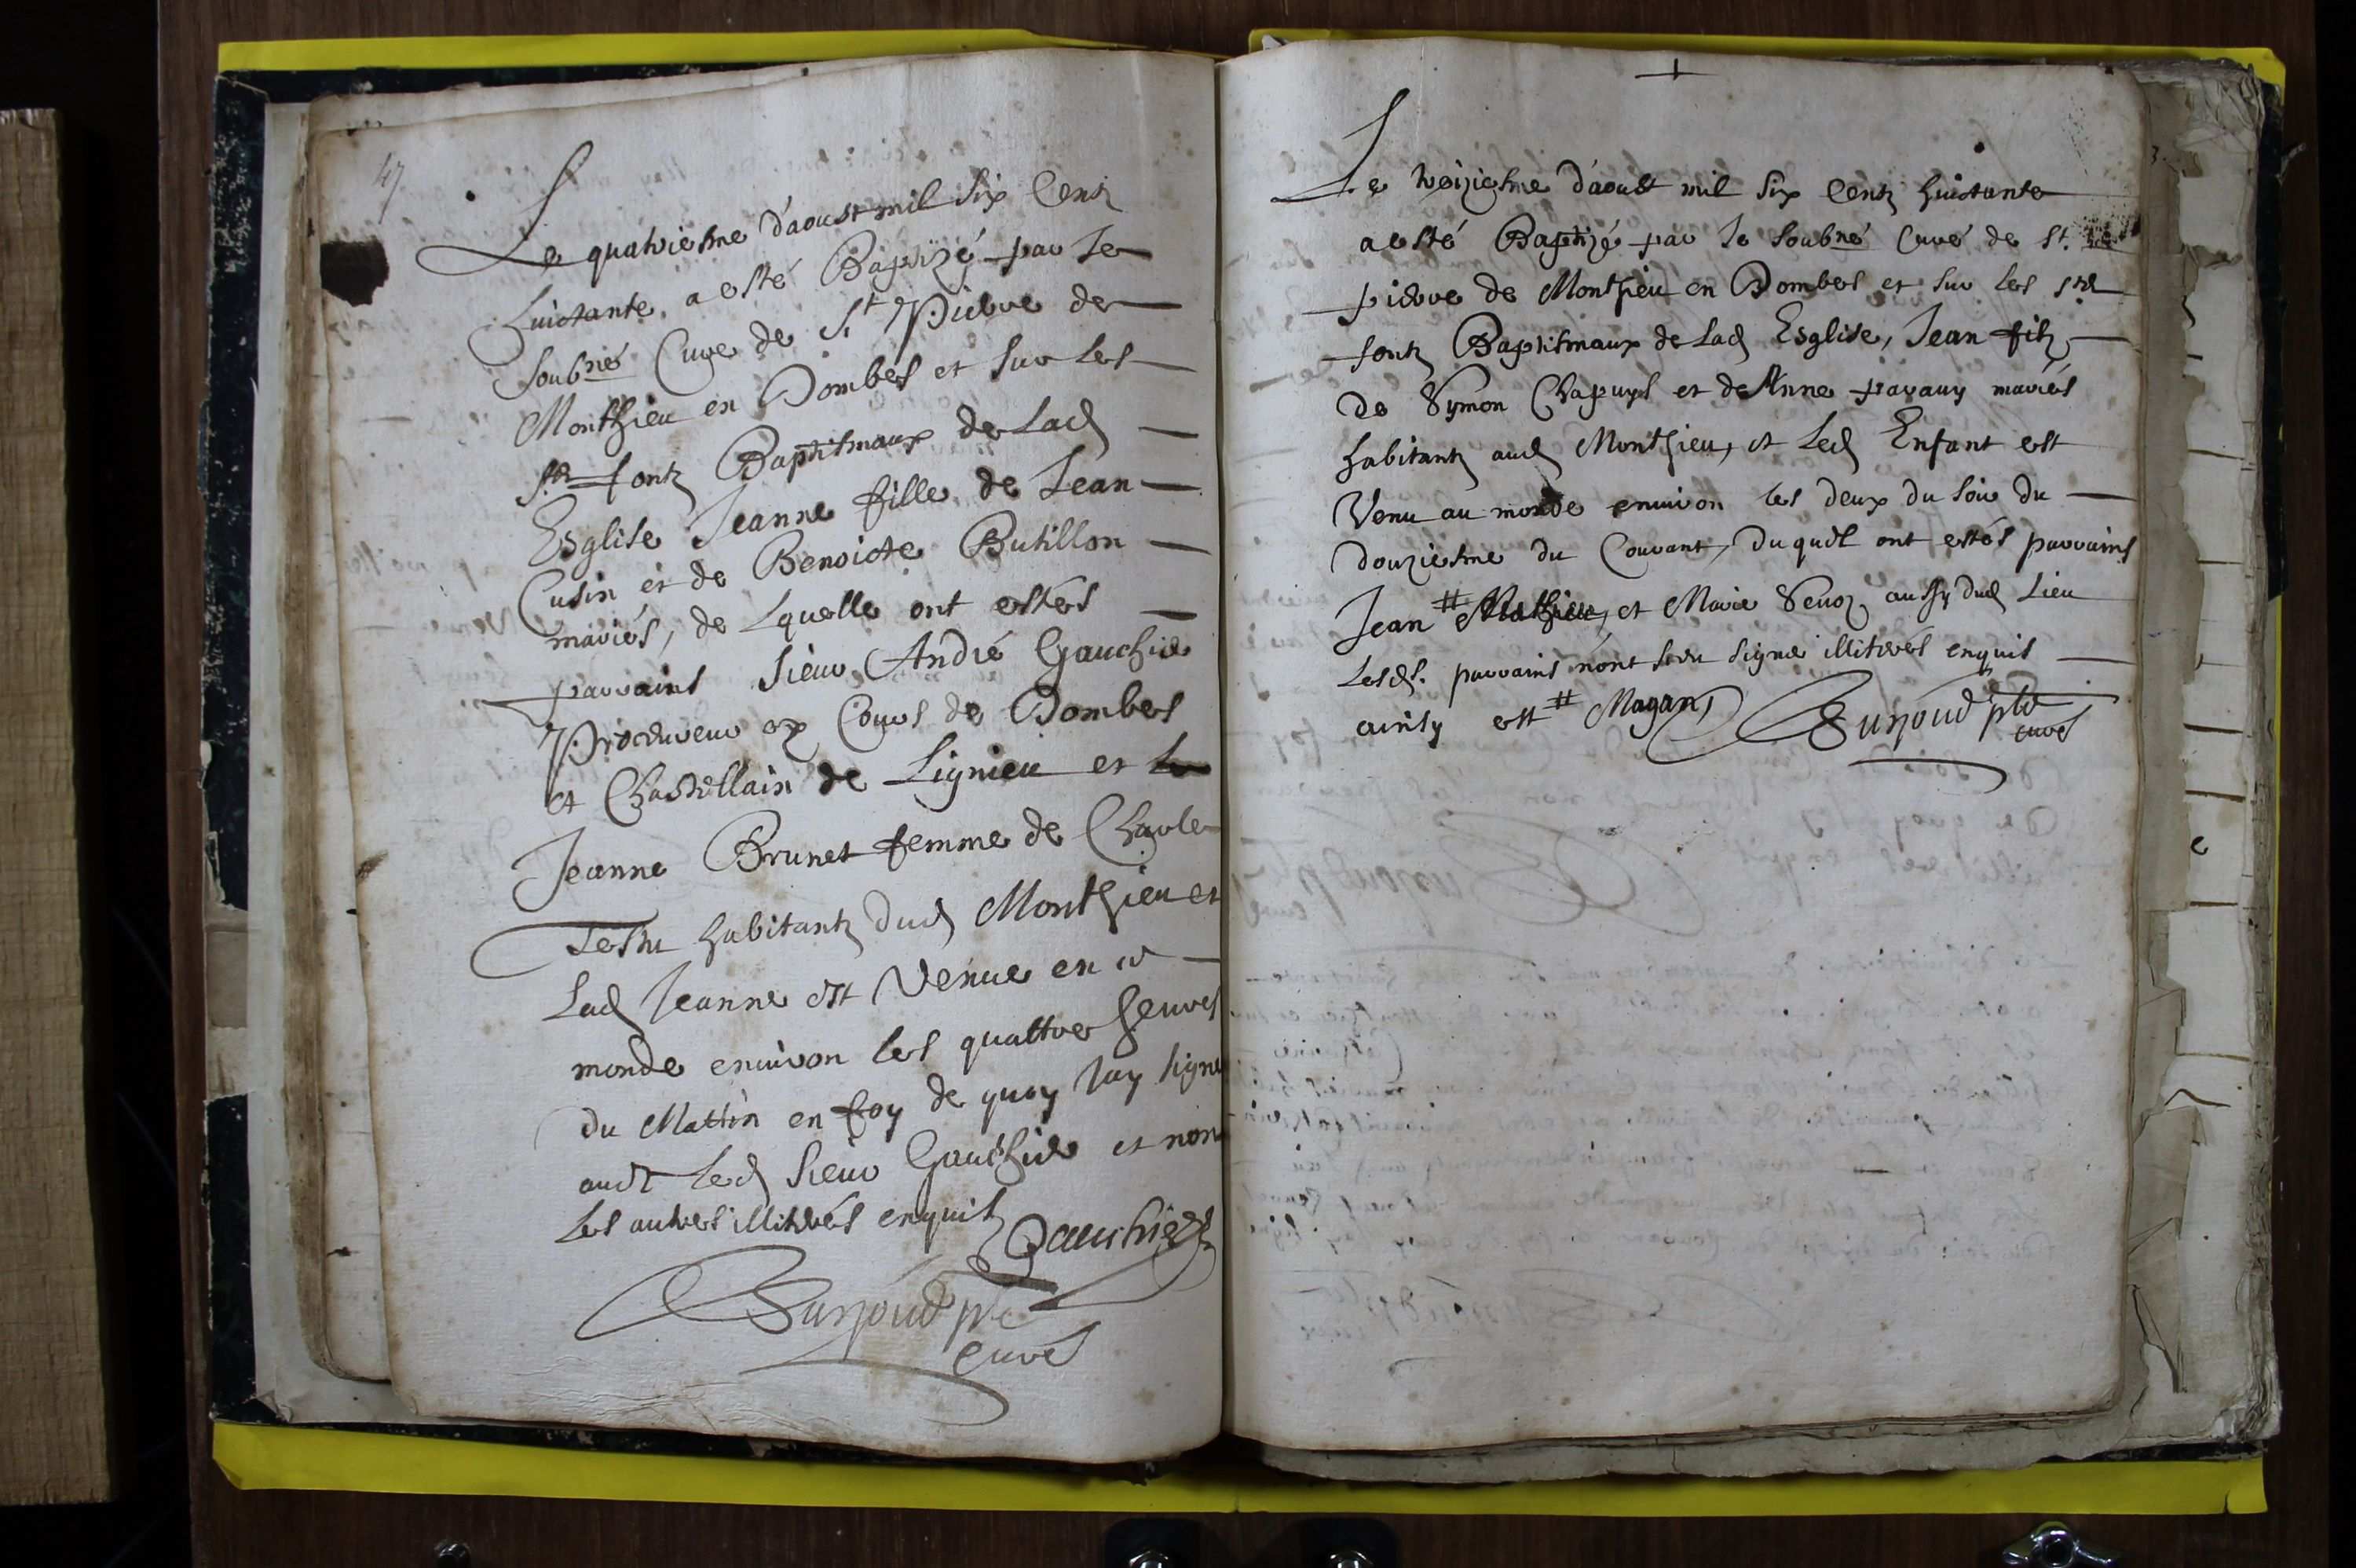 47
Le quatriesme d'aoust mil six Centz
huictante, a esté Baptizé par Je
soubné Curé de St Pierre de
Monthieu en Dombes et sur les
sts fontz Baptismaux de Lad
Esglise Jeanne fille de Jean
Cusin et de Benoicte Butillon
mariés, de Lquelle ont estés
parrains Sieur André Gauchier
Procureur ez Cours de Dombes
et Chastellain de Lignieu et
Jeanne Brunet femme de Charle
habitantz dud Monthieu et
Lad Jeanne est Venue en ce
monde environ les quattre heures
du Mattin en foy de quoy Jay signé
avec Led Sieur Gauchier et non
Les autres illiterés enquis
Gauchier
Buynoud ptre
curé
Le treiziesme d'aoust mil six Centz huictante
a esté Baptizé par Je soubné Curé de St.
pierre de Monthieu en Dombes et sur les sts
fontz Baptismaux de Lad Esglise, Jean filz
de Symon Chapuys et de Anne pavauy mariés
habitantz aud Monthieu, et Led Enfant est
Venu au monde environ les deux du soir du
douziesme du Courant, Duquel ont estés parrains
Jean # Mathieu, et Marie Sevoz aussy dud Lieu
Lesds. parrains n'ont sceu signer illiterés enquis
ainsy est # Magan Buynoud ptre
curé